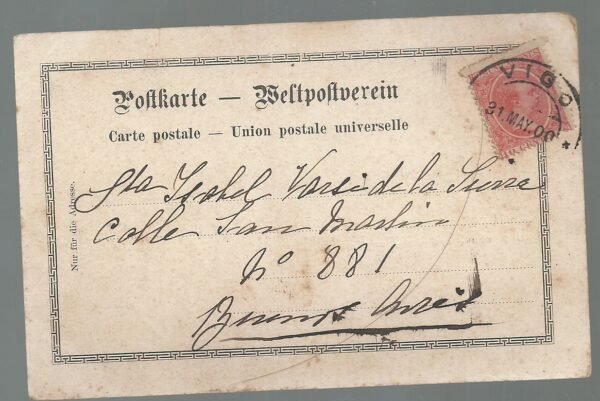 Postkarte — Weltpostverein
Carte postale — Union postale universelle
VIGO
31 MAY.00
Nur für die Adresse.
Sta Isabel Varsi de la Sierra
Calle San Martin
Nº 881
Buenos Aires